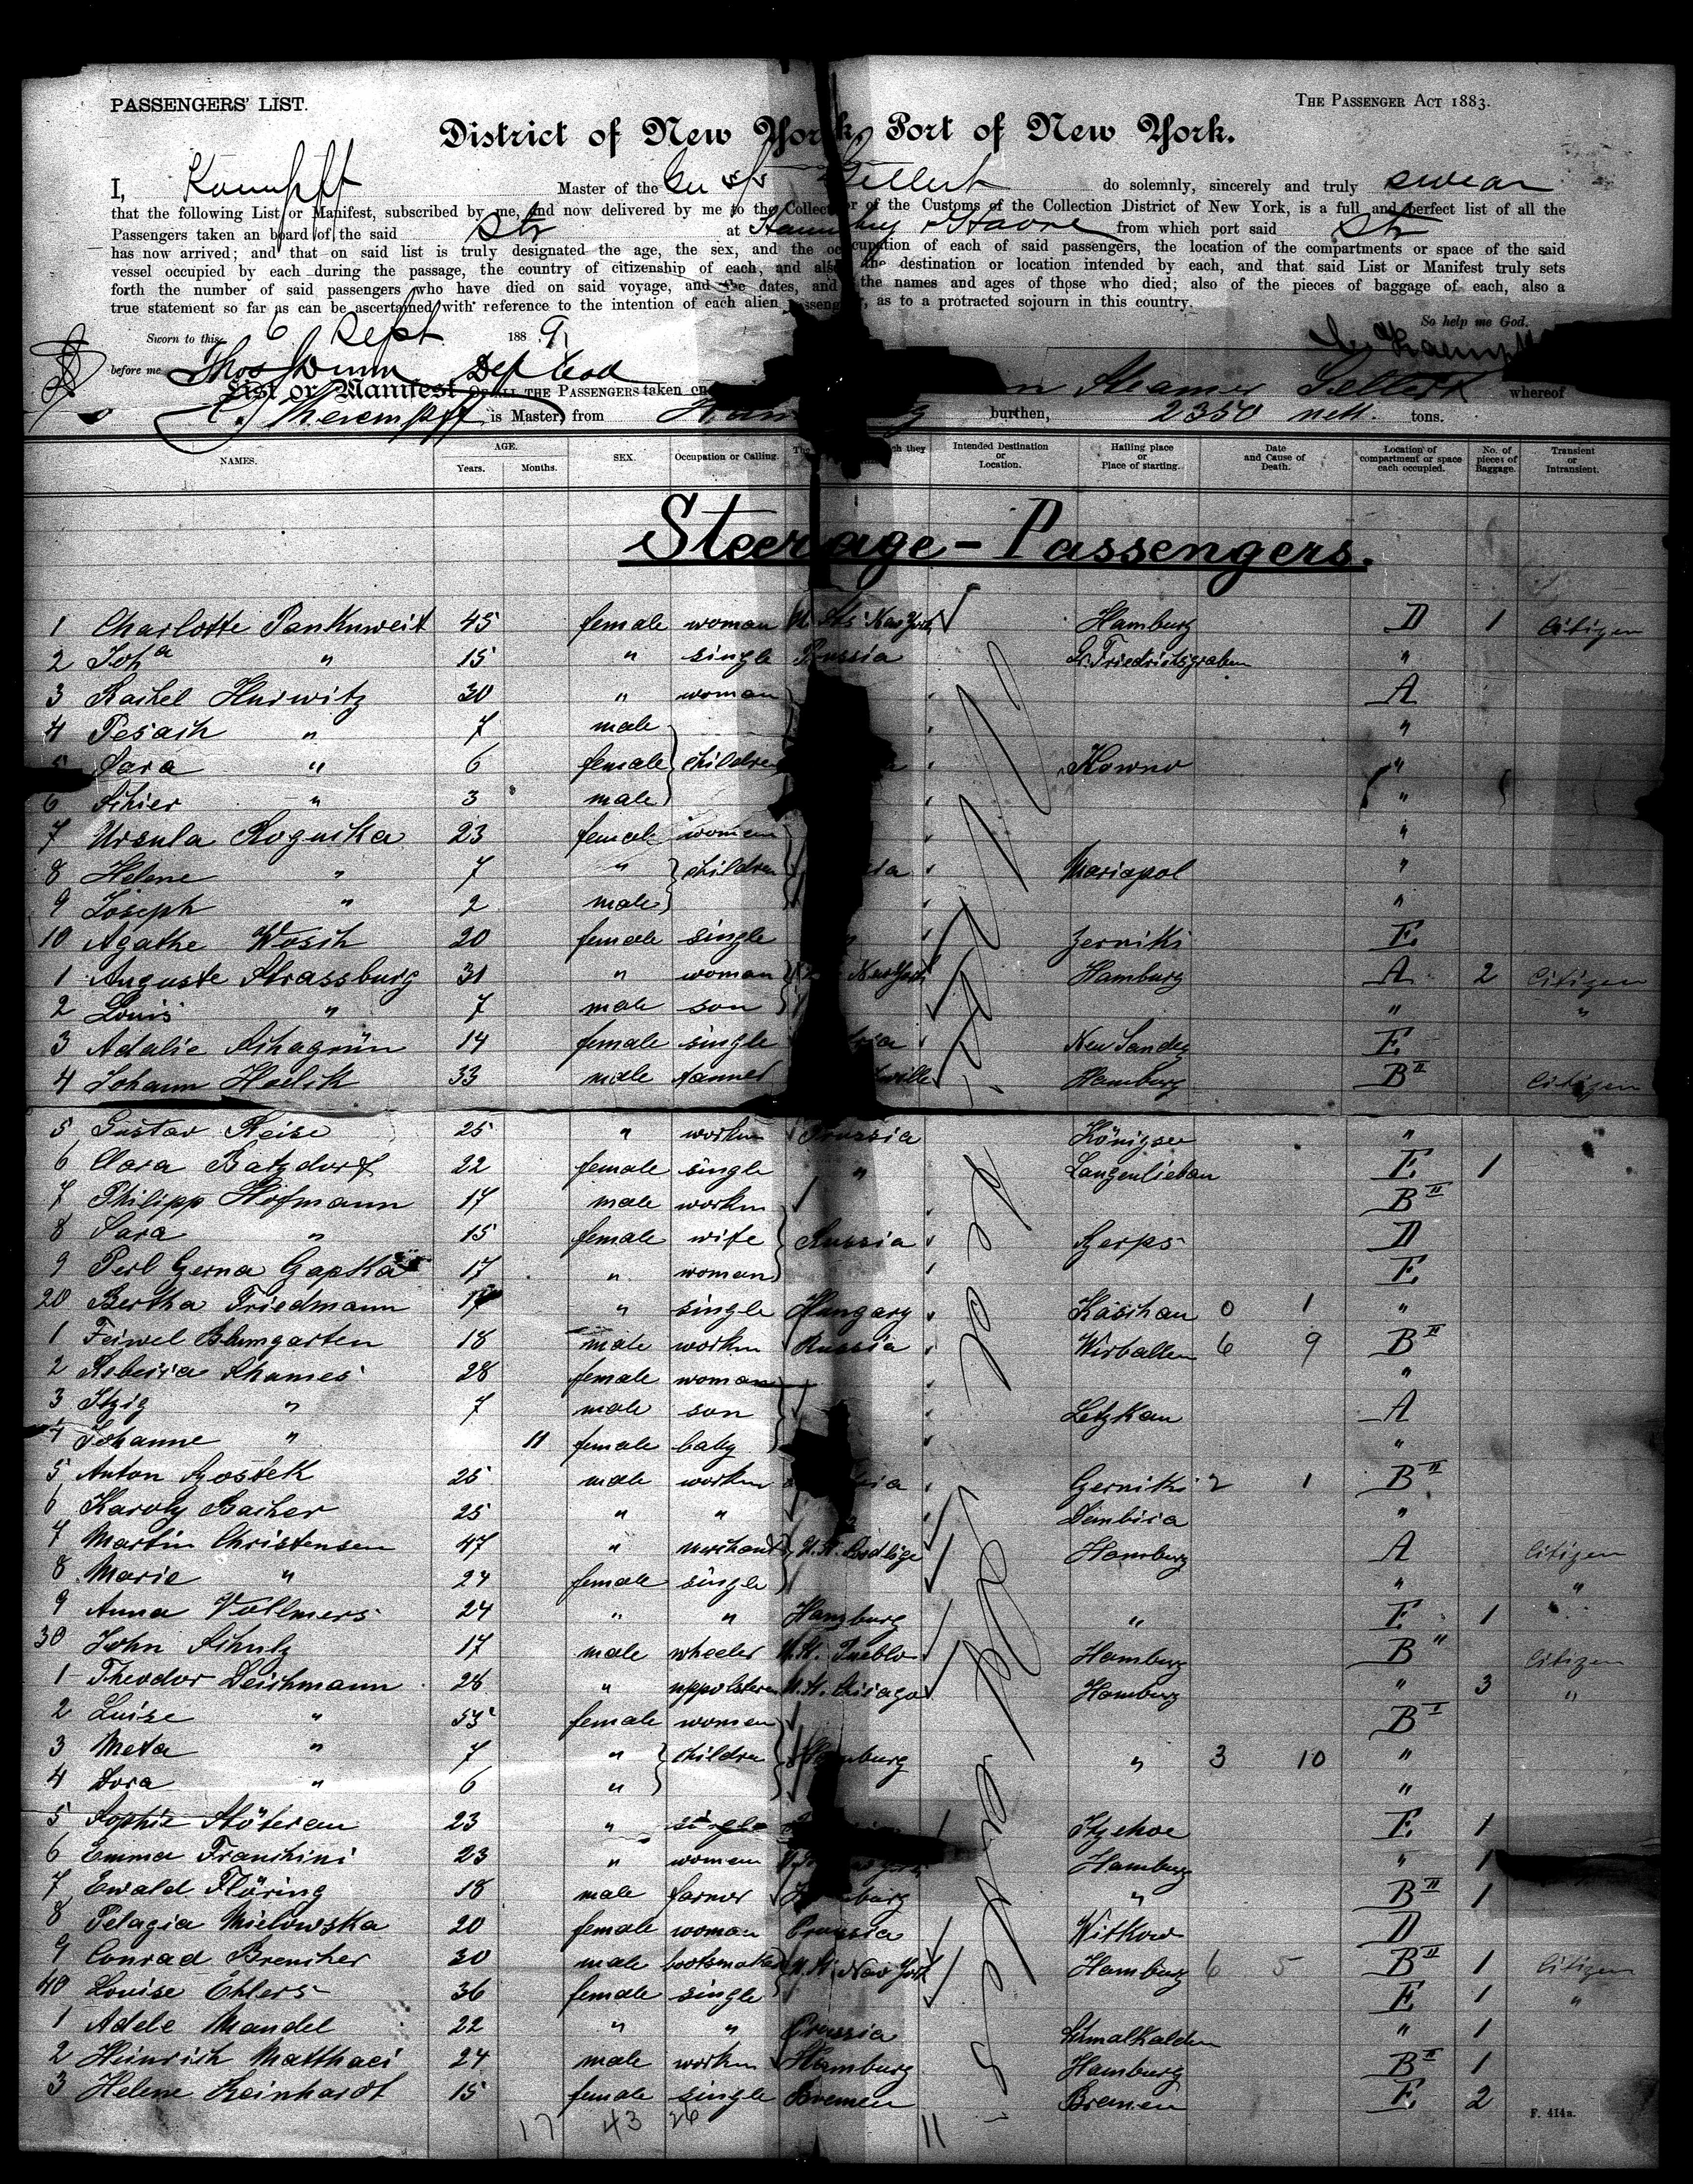 PASSENGERS' LIST.
THE PASSENGER ACT 1883.
District of New York, Port of New York.
I, Kaempff Master of the Ger s/s Gellert do solemnly, sincerely and truly swear
that the following List or Manifest, subscribed by me, and now delivered by me to the Collector of the Customs of the Collection District of New York, is a full and perfect list of all the
Passengers taken on board of the said Str at Hamburg & Havre from which port said Str
has now arrived; and that on said list is truly designated the age, the sex, and the occupation of each of said passengers, the location of the compartments or space of the said
vessel occupied by each during the passage, the country of citizenship of each, and also the destination or location intended by each, and that said List or Manifest truly sets
forth the number of said passengers who have died on said voyage, and the dates, and the names and ages of those who died; also of the pieces of baggage of each, also a
true statement so far as can be ascertained with reference to the intention of each alien passenger, as to a protracted sojourn in this country.
So help me God.
Sworn to this 6 Sept 1889
before me Thos Dunn Dep Coll
List or Manifest OF ALL THE PASSENGERS taken on Steamer Gellert whereof
is Master, from burthen, 2350 nett. tons.
NAMES. AGE. Years. Months. SEX. Occupation or Calling. ch they Intended Destination or Location. Hailing place or Place of starting. Date and Cause of Death. Location of compartment or space each occupied. No. of pieces of Baggage. Transient or Intransient.
Steerage-Passengers.
1 Charlotte Pankuweit 45 female woman Hamburg D 1 Citizen
2 Joh a " 15 " single Prussia Gr. Friedrichsgraben "
3 Rachel Hurwitz 30 " woman A
4 Pesach " 7 male "
5 Sara " 6 female children Kowno "
6 Schier " 3 male "
7 Ursula Roguska 23 female woman "
8 Helene " 7 " children Mariapol "
9 Joseph " 2 male "
10 Agathe Wosch 20 female single Zerniki E
1 Auguste Strassburg 31 " woman New York Hamburg A 2 Citizen
2 Louis " 7 male son " "
3 Adalie Schagrün 14 female single Neu Sandez E
4 Johann Hoelik 33 male tanner Hamburg B II Citizen
5 Gustav Reise 25 " workm Prussia Königsee "
6 Clara Batzdorf 22 female single " Langenbielau E 1
7 Philipp Hofmann 17 male workm B II
8 Sara " 15 female wife Russia Szerps D
9 Perl Gerna Gapka 17 " woman E
20 Bertha Friedmann 17 " single Hungary Kaschau 0 1 "
1 Feiwel Blumgarten 18 male workm Russia Wirballen 6 9 B II
2 Rebecca Schames 28 female woman "
3 Itzig " 7 male son Letzkau A
4 Johanne " 11 female baby "
5 Anton Szostek 25 male workm Gerniki 2 1 B II
6 Karoly Bacher 25 " " Dembica "
7 Martin Christensen 47 " merchant Hamburg A Citizen
8 Marie " 24 female single " "
9 Anna Vollmers 24 " " Hamburg " E 1 "
30 John Schulz 17 male wheeler U.St. Pueblo Hamburg B II Citizen
1 Theodor Deichmann 28 " uppolsterer U.St. Chicago Hamburg " 3 "
2 Luise " 55 female woman B I
3 Meta " 7 " children Hamburg " 3 10 "
4 Dora " 6 " "
5 Sophie Stöterau 23 " single Itzehoe E 1
6 Emma Franchini 23 " woman Hamburg " 1
7 Ewald Flöring 18 male farmer Hamburg " B II 1
8 Pelagia Mielowska 20 female woman Prussia Witkow D
9 Conrad Brenscher 30 male bootsmaker U.St. New York Hamburg 6 5 B II 1 Citizen
40 Louise Ehlers 36 female single E 1 "
1 Adele Mandel 22 " " Prussia Schmalkalden " 1
2 Heinrich Matthaei 24 male workm Hamburg Hamburg B II 1
3 Helene Reinhardt 15 female single Bremen Bremen E 2
17 43 26 11
F. 414a.